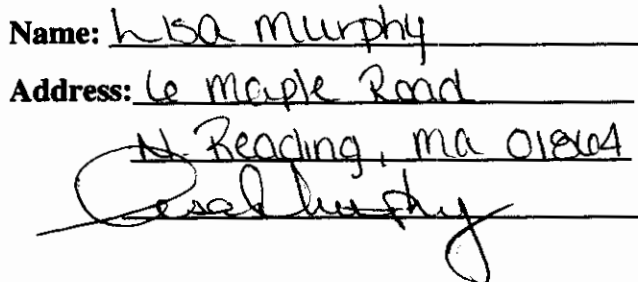 Name: Lisa Murphy
Address: 6 Maple Road
N. Reading, MA 01864
Lisa Murphy